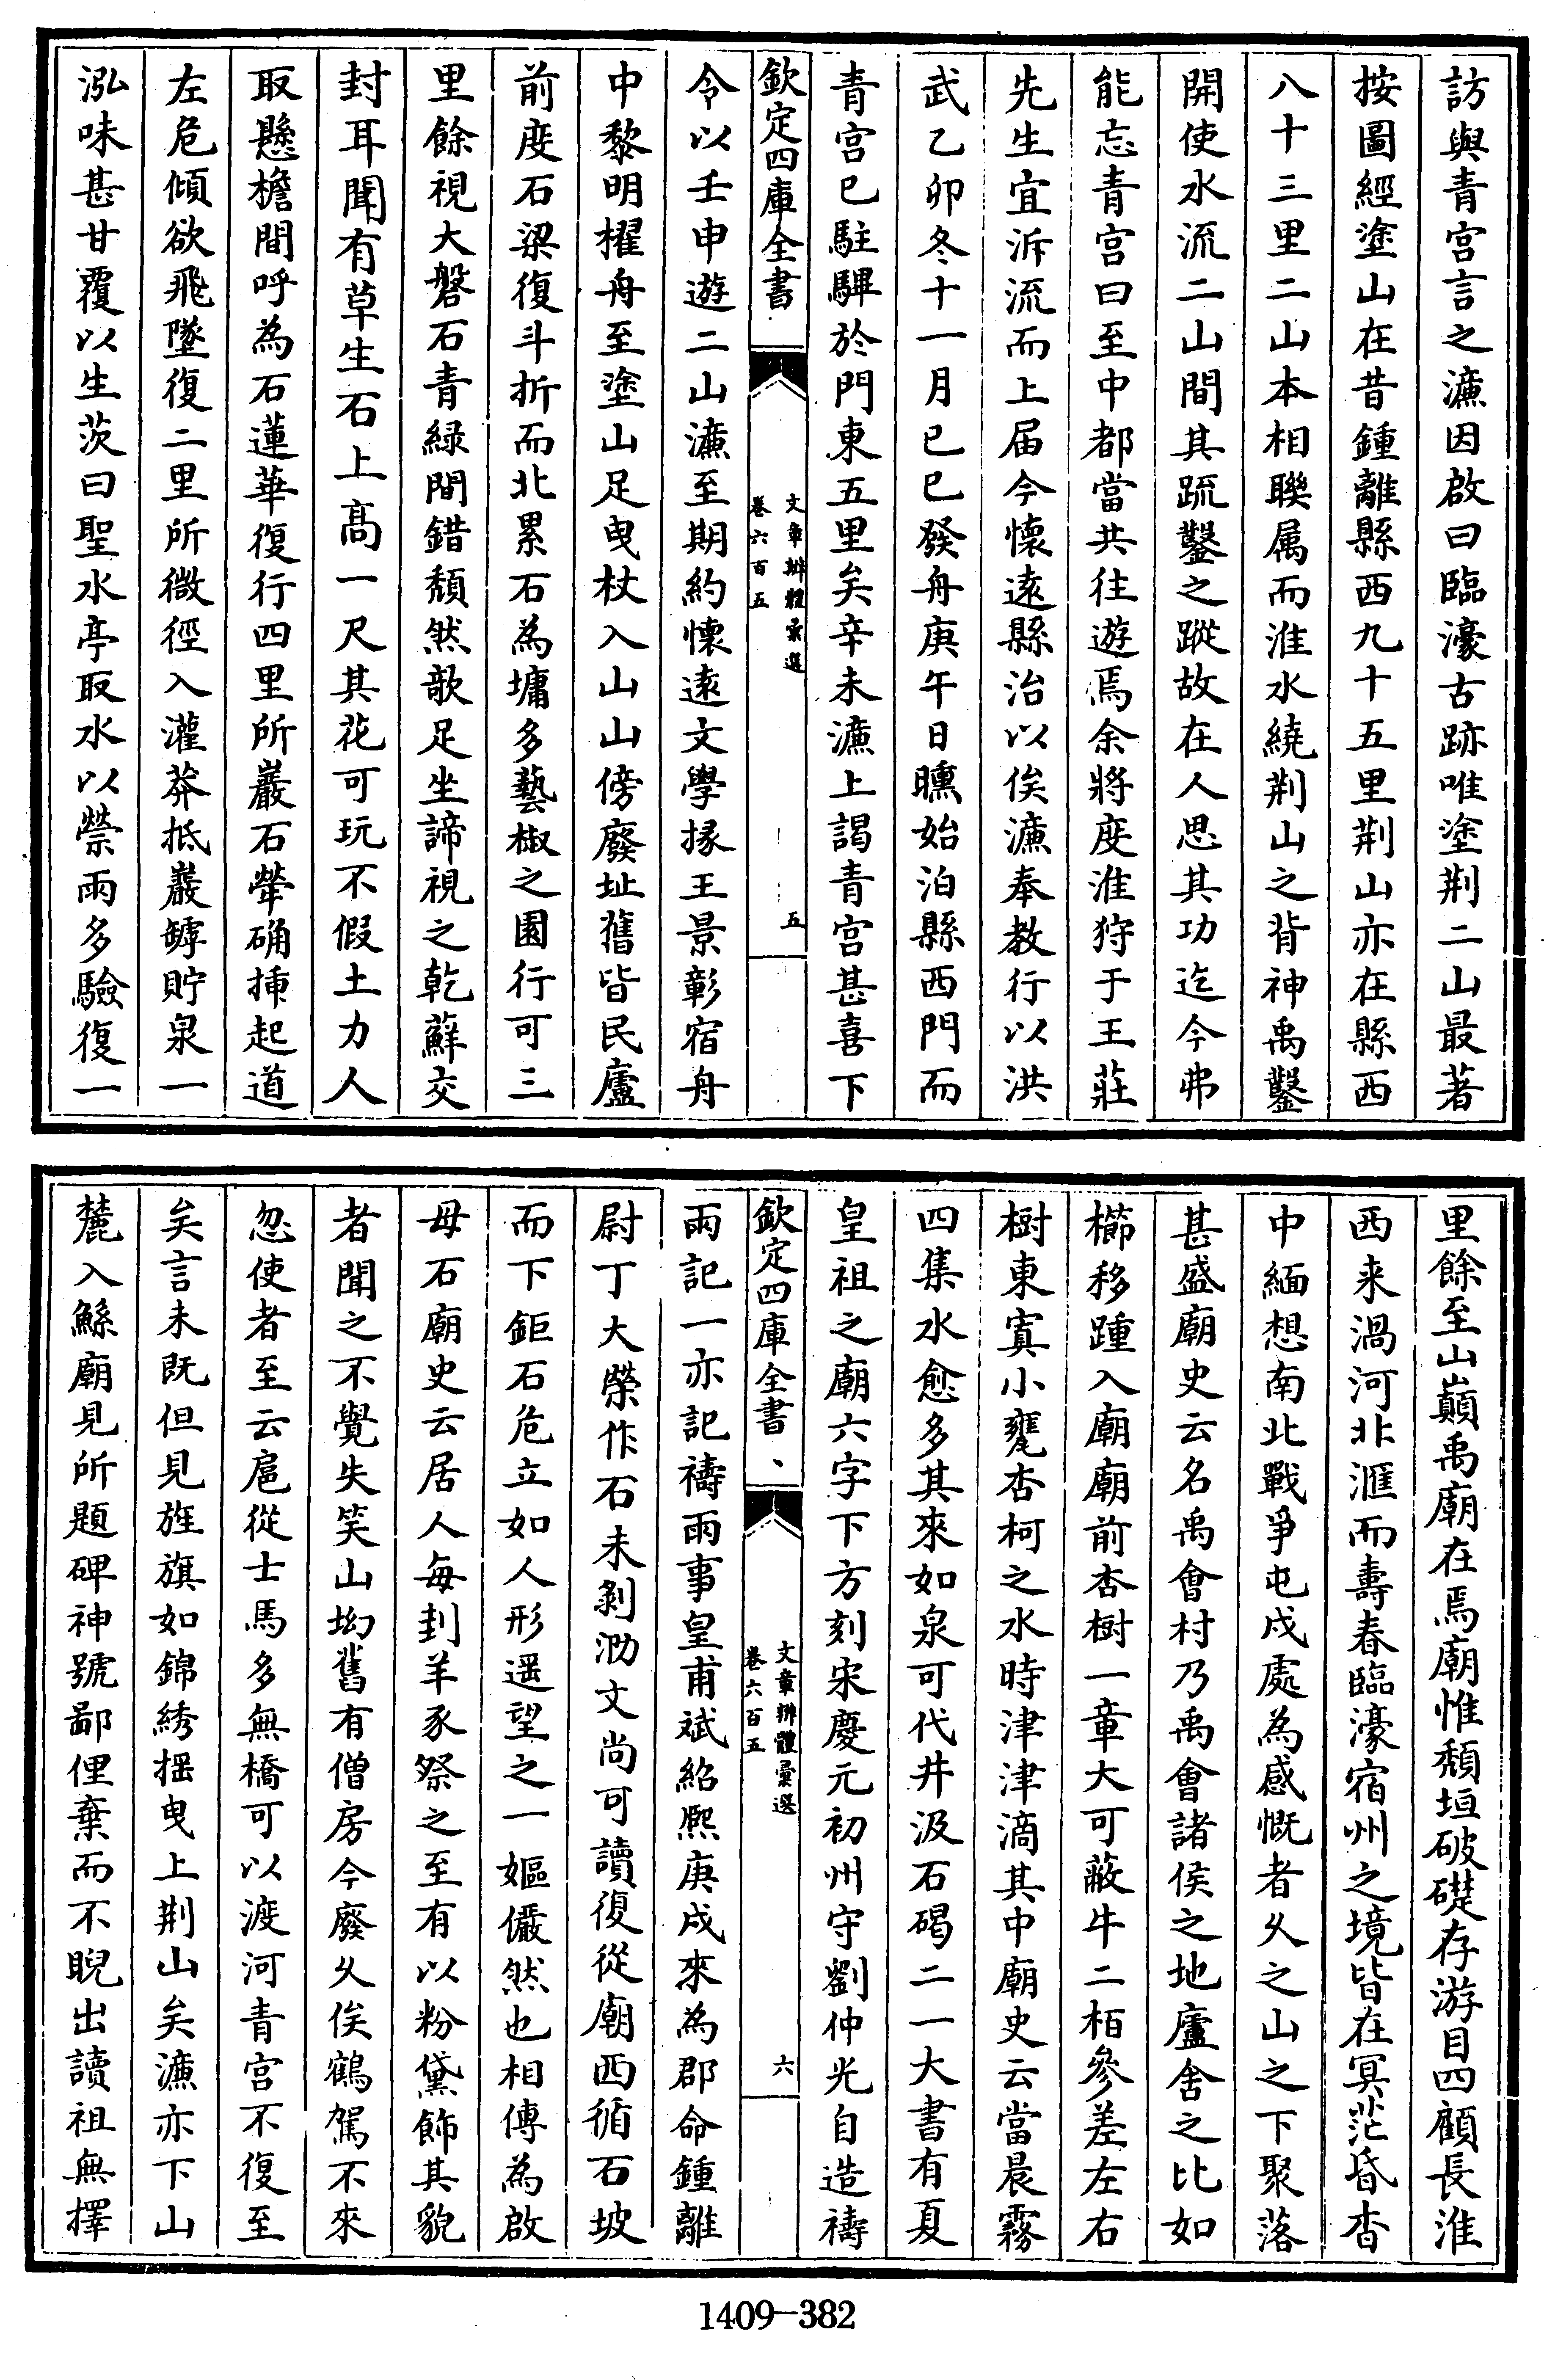 訪與青宫言之濂因啟曰臨濠古跡唯塗荆二山最著
按圖經塗山在昔鍾離縣西九十五里荆山亦在縣西
八十三里二山本相聯属而淮水繞荆山之背神禹鑿
開使水流二山間其䟽鑿之蹤故在人思其功迄今弗
能忘青宫曰至中都當共往遊焉余將度淮狩于王莊
先生宜泝流而上届今懷逺縣治以俟濂奉教行以洪
武乙卯冬十一月己巳發舟庚午日曛始泊縣西門而
青宫已駐驆於門東五里矣辛未濂上謁青宫甚喜下
欽定四庫全書
文章辨體彚選
卷六百五
五
令以壬申遊二山濂至期約懐逺文學掾王景彰宿舟
中黎明櫂舟至塗山足曳杖入山山傍廢址舊皆民廬
前度石梁復斗折而北累石為墉多藝椒之園行可三
里餘視大磐石青緑間錯頹然欹足坐諦視之乾蘚交
封耳聞有草生石上髙一尺其花可玩不假土力人
取懸檐間呼為石蓮華復行四里所巖石犖确揷起道
左危傾欲飛墜復二里所微徑入灌莽抵巖罅貯泉一
泓味甚甘覆以生茨曰聖水亭取水以禜雨多驗復一
里餘至山巔禹廟在焉廟惟頹垣破礎存游目四顧長淮
西来渦河北滙而壽春臨濠宿州之境皆在冥茫昏杳
中緬想南北戰爭屯戍處為感慨者乆之山之下聚落
甚盛廟史云名禹會村乃禹會諸侯之地廬舍之比如
櫛移踵入廟廟前杏樹一章大可蔽牛二栢參差左右
樹東寘小甕杏柯之水時津津滴其中廟史云當晨霧
四集水愈多其來如泉可代井汲石碣二一大書有夏
皇祖之廟六字下方刻宋慶元初州守劉仲光自造禱
欽定四庫全書
文章辨體彙選
卷六百五
六
雨記一亦記禱雨事皇甫斌紹熈庚戍來為郡命鍾離
尉丁大榮作石未剝泐文尚可讀復從廟西循石坡
而下鉅石危立如人形遥望之一嫗儼然也相傳為啟
母石廟史云居人每刲羊豕祭之至有以粉黛飾其貌
者聞之不覺失笑山坳舊有僧房今廢乆俟鶴駕不來
忽使者至云扈從士馬多無橋可以渡河青宫不復至
矣言未既但見旌旗如錦綉揺曳上荆山矣濂亦下山
麓入鯀廟見所題碑神號鄙俚棄而不睨出讀祖無擇
1409—382